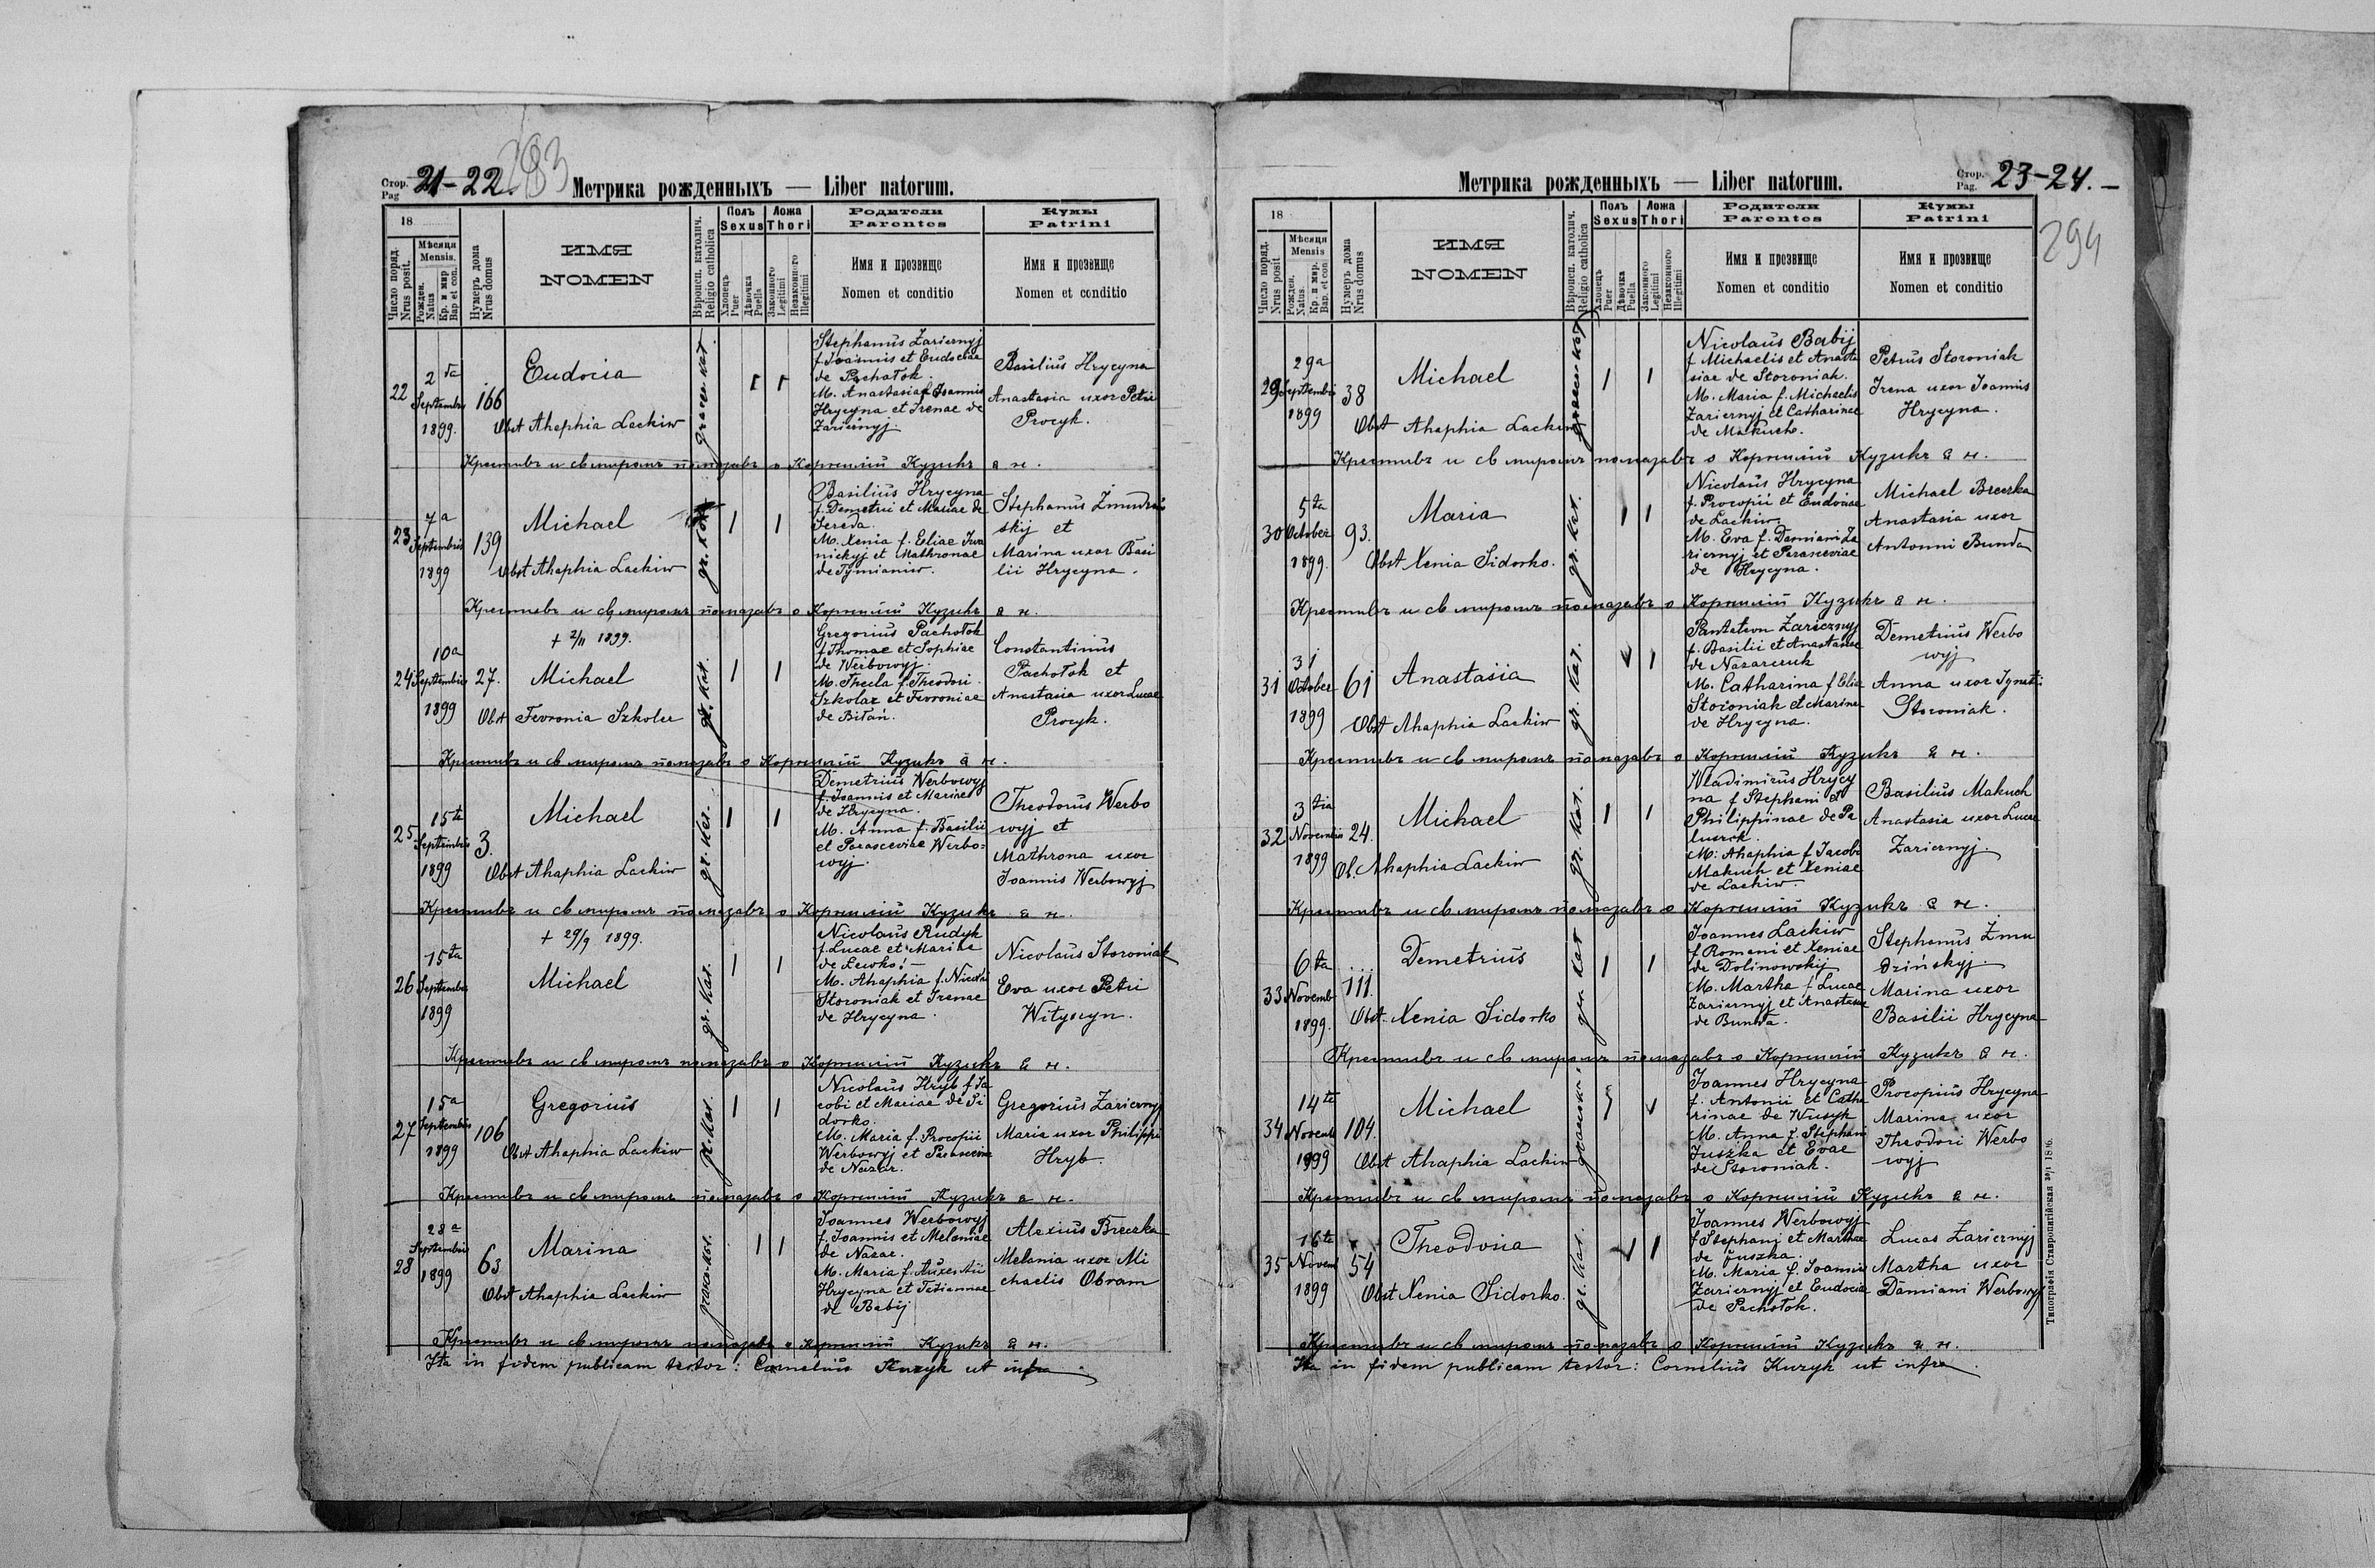 Стор. Pag 21-22. 293
Метрика рожденныхъ — Liber natorum.
18
Число поряд. Nrus posit.
Мѣсяця Mensis.
Рожден. Natus
Кр. и мир Bap et con.
Нумеръ дома Nrus domus
ИМЯ
NOMEN
Вѣроисп. католич. Religio catholica
Полъ Sexus
Хлопецъ Puer
Дѣвочка Puella
Ложа Thori
Законного Legitimi
Незаконного Illegitimi
Родители
Parentes
Имя и прозвище
Nomen et conditio
Кумы
Patrini
Имя и прозвище
Nomen et conditio
22
2 da
Septembris
1899.
166
Eudocia
Obst Ahaphia Lackiw
graeco-kat.
Stephanus Zariernyj
f Joannis et Eudociae
de Pachołok.
M. Anastasia f Joannis
Hrycyna et Irenae de
Zariernyj.
Basilius Hrycyna
Anastasia uxor Petri
Procyk.
Крестивъ и св мѵромъ помазавъ о Корнилій Кузикъ
23
7a
Septembris
1899
139
Michael
Obst Ahaphia Lackiw
gr. kat.
Basilius Hrycyna
f. Demetrii et Mariae de
Sereda.
M. Xenia f. Eliae Iwa
nickyj et Mathronae
de Tymianiw.
Stephanus Żmudziń
skij et
Marina uxor Basi
lii Hrycyna.
Крестивъ и св мѵромъ помазавъ о Корнилій Кузикъ
24
10a
Septembris
1899
27.
+ 2/11 1899.
Michael
Obst Fevronia Szkolar
gr. kat.
Gregorius Pachołok
f Thomae et Sophiae
de Werbowyj.
M. Thecla f. Theodori
Szkolar et Fevroniae
de Bitan.
Constantinus
Pachołok et
Anastasia uxor Lucae
Procyk.
Крестивъ и св мѵромъ помазавъ о Корнилій Кузикъ
25
15ta
Septembris
1899
3.
Michael
Obst Ahaphia Lackiw
gr. kat.
Demetrius Werbowyj
f. Joannis et Marinae
de Hrycyna.
M. Anna f. Basilii
et Parasceviae Werbo-
wyj.
Theodorus Werbo
wyj et
Mathrona uxor
Joannis Werbowyj
Крестивъ и св мѵромъ помазавъ о Корнилій Кузикъ
26
15ta
Septembris
1899
+ 29/9 1899.
Michael
gr. kat.
Nicolaus Rudyk
f. Lucae et Marinae
de Lewko.
M. Ahaphia f. Nicolai
Storoniak et Irenae
de Hrycyna.
Nicolaus Storoniak
Eva uxor Petri
Wityszyn.
Крестивъ и св мѵромъ помазавъ о Корнилій Кузикъ
27
15a
Septembris
1899
106
Gregorius
Obst Ahaphia Lackiw
gr. kat.
Nicolaus Hryb f Ja
cobi et Mariae de Si
dorko.
M. Maria f. Procopii
Werbowyj et Parasceviae
de Nazar.
Gregorius Zariernyj
Maria uxor Philippi
Hryb.
Крестивъ и св мѵромъ помазавъ о Корнилій Кузикъ
28
28a
Septembris
1899
63
Marina
Obst Ahaphia Lackiw
graeco-kat.
Joannes Werbowyj
f. Joannis et Melaniae
de Nazar.
M. Maria f. Auxentii
Hrycyna et Tatiannae
de Babij
Alexius Breczka
Melania uxor Mi
chaelis Obram
Крестивъ и св мѵромъ помазавъ о Корнилій Кузикъ
Ita in fidem publicam testor: Cornelius Kuzyk ut infra
Стор. Pag. 23-24.-
294
Метрика рожденныхъ — Liber natorum.
18
Число поряд. Nrus posit
Мѣсяця Mensis
Рожден. Natus.
Кр. и мир. Bap. et con
Нумеръ дома Nrus domus
ИМЯ
NOMEN
Вѣроисп. католич. Religio catholica
Полъ Sexus
Хлопецъ Puer
Дѣвочка Puella
Ложа Thori
Законного Legitimi
Незаконного Illegitimi
Родители
Parentes
Имя и прозвище
Nomen et conditio
Кумы
Patrini
Имя и прозвище
Nomen et conditio
29
29a
Septembris
1899
38
Michael
Obst Ahaphia Lackiw
graeco-kat
Nicolaus Babij
f Michaelis et Anasta
siae de Storoniak.
M. Maria f. Michaelis
Zariernyj et Catharinae
de Makuch.
Petrus Storoniak
Irena uxor Joannis
Hrycyna.
Крестивъ и св мѵромъ помазавъ о Корнилій Кузикъ
30
5ta
October
1899.
93.
Maria
Obst Xenia Sidorko.
gr. kat.
Nicolaus Hrycyna
f. Procopii et Eudociae
de Lackiw
M. Eva f. Damiani Za
riernyj et Parasceviae
de Hrycyna.
Michael Breczka
Anastasia uxor
Antonni Bunda
Крестивъ и св мѵромъ помазавъ о Корнилій Кузикъ
31
31
October
1899
61
Anastasia
Obst Ahaphia Lackiw
gr. kat.
Panteleon Zaricznyj
f. Basilii et Anastasiae
de Nazarczuk
M. Catharina f Eliae
Storoniak et Marinae
de Hrycyna.
Demetrius Werbo
wyj
Anna uxor Ignatii
Storoniak.
Крестивъ и св мѵромъ помазавъ о Корнилій Кузикъ
32
3tia
Novembris
1899
24.
Michael
Ob. Ahaphia Lackiw
gr. kat.
Wladimirus Hrycy
na f Stephani et
Philippinae de Pa
luszok.
M. Ahaphia f Jacobi
Makuch et Xeniae
de Lackiw.
Basilius Makuch
Anastasia uxor Lucae
Zariernyj
Крестивъ и св мѵромъ помазавъ о Корнилій Кузикъ
33
6ta
Novemb
1899.
111.
Demetrius
Obst. Xenia Sidorko
gr. kat
Joannes Lackiw
f Romani et Xeniae
de Dolinowskij
M. Martha f Lucae
Zariernyj et Anastasiae
de Bunda.
Stephanus Żmu
dzińskyj.
Marina uxor
Basilii Hrycyna
Крестивъ и св мѵромъ помазавъ о Корнилій Кузикъ
34
14te
Novemb
1899
104.
Michael
Obst Ahaphia Lackiw
Joannes Hrycyna
f. Antonii et Catha
rinae de Wusyk
M. Anna f. Stephani
Juszka et Evae
de Storoniak.
Procopius Hrycyna
Marina uxor
Theodori Werbo
wyj
Крестивъ и св мѵромъ помазавъ о Корнилій Кузикъ
35
16te
Novem
1899
54
Theodosia
Obst Xenia Sidorko.
gr. kat.
Joannes Werbowyj
f Stephani et Marinae
de Juszka.
M. Maria f. Joannis
Zariernyj et Eudocia
de Pachołok.
Lucas Zariernyj
Martha uxor
Damiani Werbowyj
Крестивъ и св мѵромъ помазавъ о Корнилій Кузикъ
Ita in fidem publicam testor: Cornelius Kuzyk ut infra.
Типографія Ставропигійская